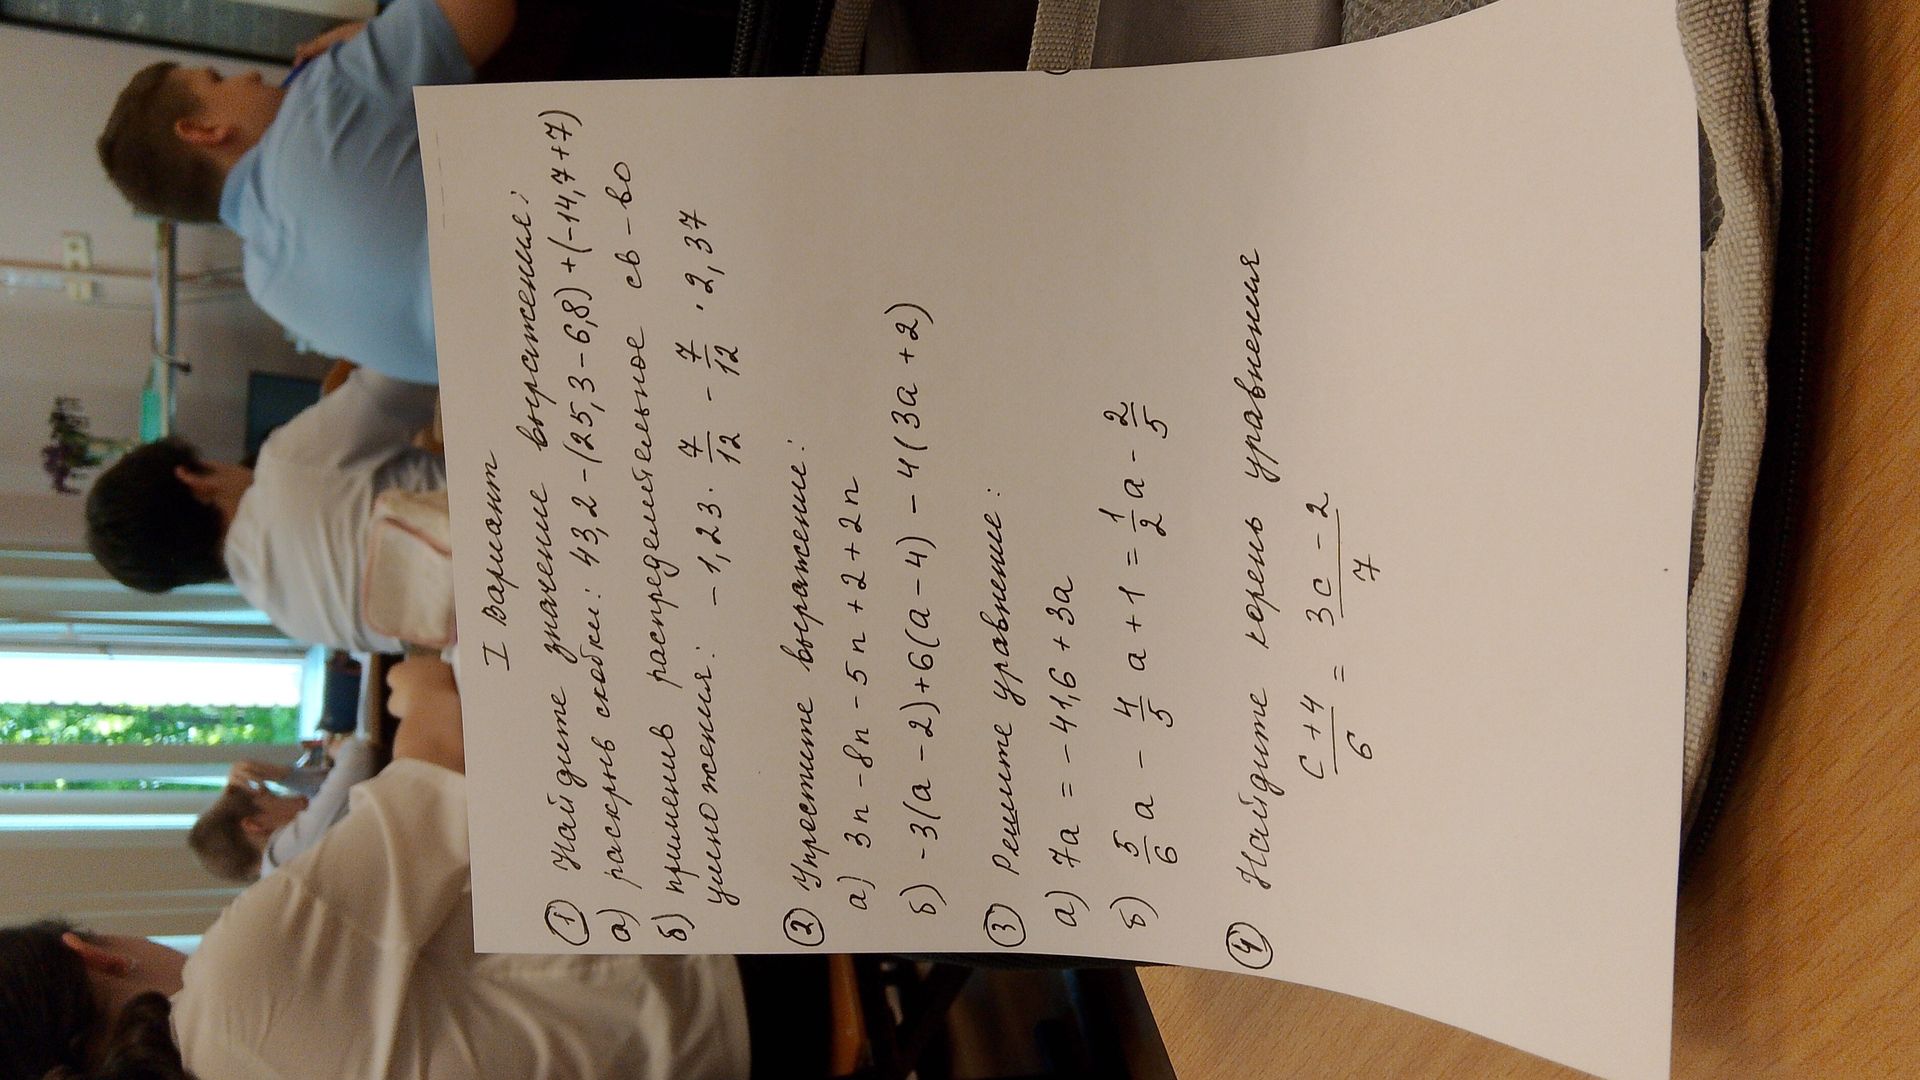 I Вариант
① Найдите значение выражения:
а) раскрыв скобки: 43,2 - (25,3 - 6,8) + (-14,7 + 7)
б) применив распределительное св-во
умножения: -1,23 · 7/12 - 7/12 · 2,37
② Упростите выражение:
а) 3n - 8n - 5n + 2 + 2n
б) -3(a - 2) + 6(a - 4) - 4(3a + 2)
③ Решите уравнение:
а) 7a = -41,6 + 3a
б) 5/6 a - 4/5 a + 1 = 1/2 a - 2/5
④ Найдите корень уравнения
c + 4/6 = 3c - 2/7